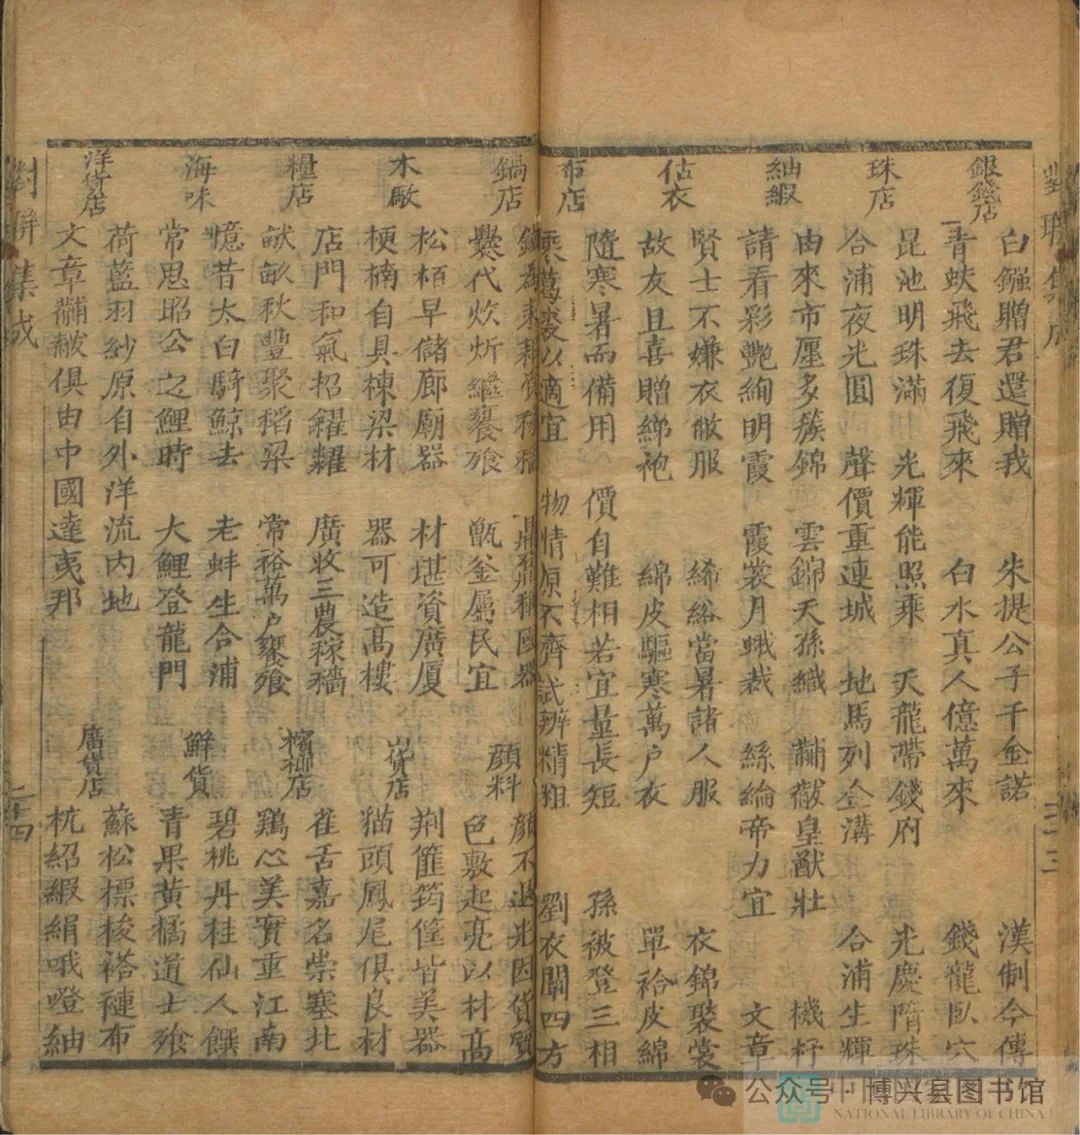 對聯集成
銀錢店
白鏹贈君還贈我 朱提公子千金諾 漢制今傳
青蚨飛去復飛來 白水真人億萬來 錢龍臥穴
珠店
昆池明珠滿 光輝能照乘 天龍帶錢府 光慶隋珠
合浦夜光圓 聲價重連城 地馬列金溝 合浦生輝
紬緞
由來市厘多簇錦 雲錦天孫織 黼黻皇猷壯 機杼
請看彩艷絢明霞 霞裳月蛾裁 絲綸帝力宜 文章
估衣
賢士不嫌衣敝服 絺綌當暑諸人服 衣錦褧裳
故友且喜贈綈袍 綿皮驅寒萬户衣 單袷皮綿
布店
隨寒暑而備用 價自難相若宜量長短 孫被登三相
以適宜 物情原不齊試辨精粗 劉衣闊四方
二十三
鍋店
爨代炊炘繼饔飱 甑釜屬民宜
顏料
顏不退光因貨寶
色敷起亮以材高
木廠
松栢早儲廊廟器 材堪資廣厦
梗楠自具棟梁材 器可造高樓
山貨店
荆篚筠筐皆美器
猫頭鳳尾俱良材
糧店
店門和氣招糴糶 廣收三農稼穡
畝畝秋豐聚稻粱 常裕萬户饔飱
檳榔店
雀舌嘉名崇塞北
鷄心美實重江南
海味
憶昔太白騎鯨去 老蚌生合浦
常思昭公之鯉時 大鯉登龍門
鮮貨
碧桃丹桂仙人饌
青果黄橘道士飱
洋貨店
荷蘭羽紗原自外洋流内地
文章黼黻俱由中國達夷邦
廣貨店
蘇松標梭褡褳布
杭紹緞絹哦噔紬
對聯集成
二十四
公众号·博兴县图书馆
NATIONAL LIBRARY OF CHINA